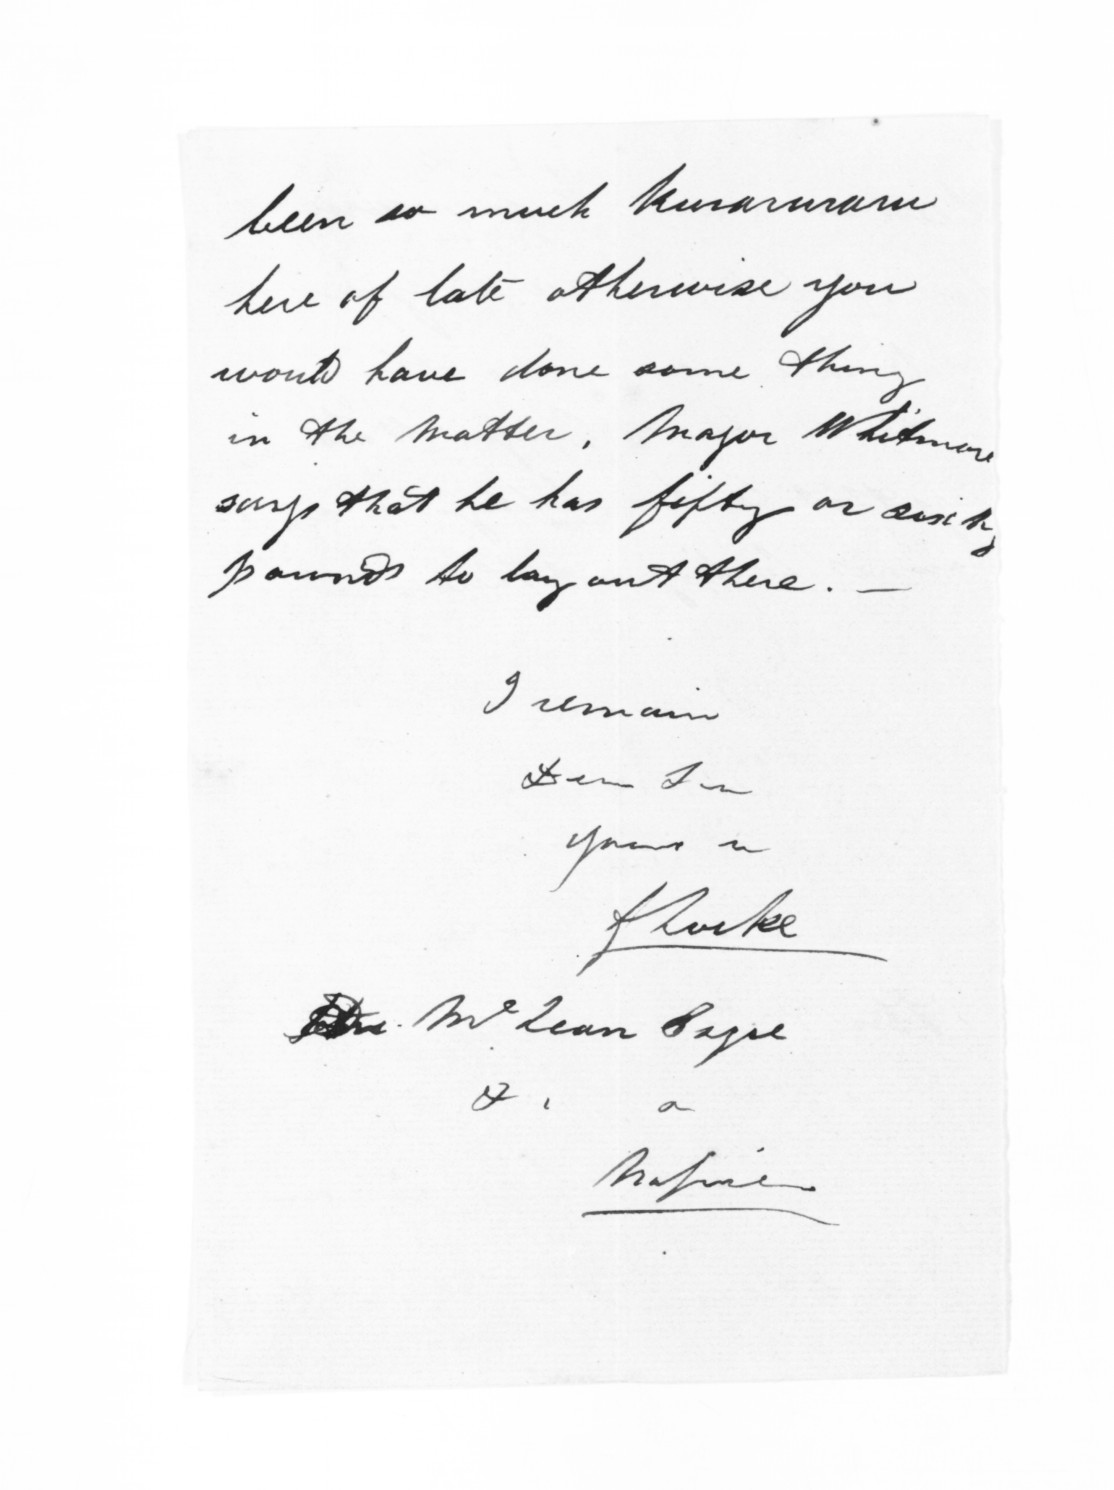 been so much Kuraruraru
here of late otherwise you
would have done some thing
in the Matter, Major Whitmore
says that he has fifty or sixty
pounds to lay out there. —
I remain
Dear Sir
yours
Locke
McLean Esqre
&
Napier